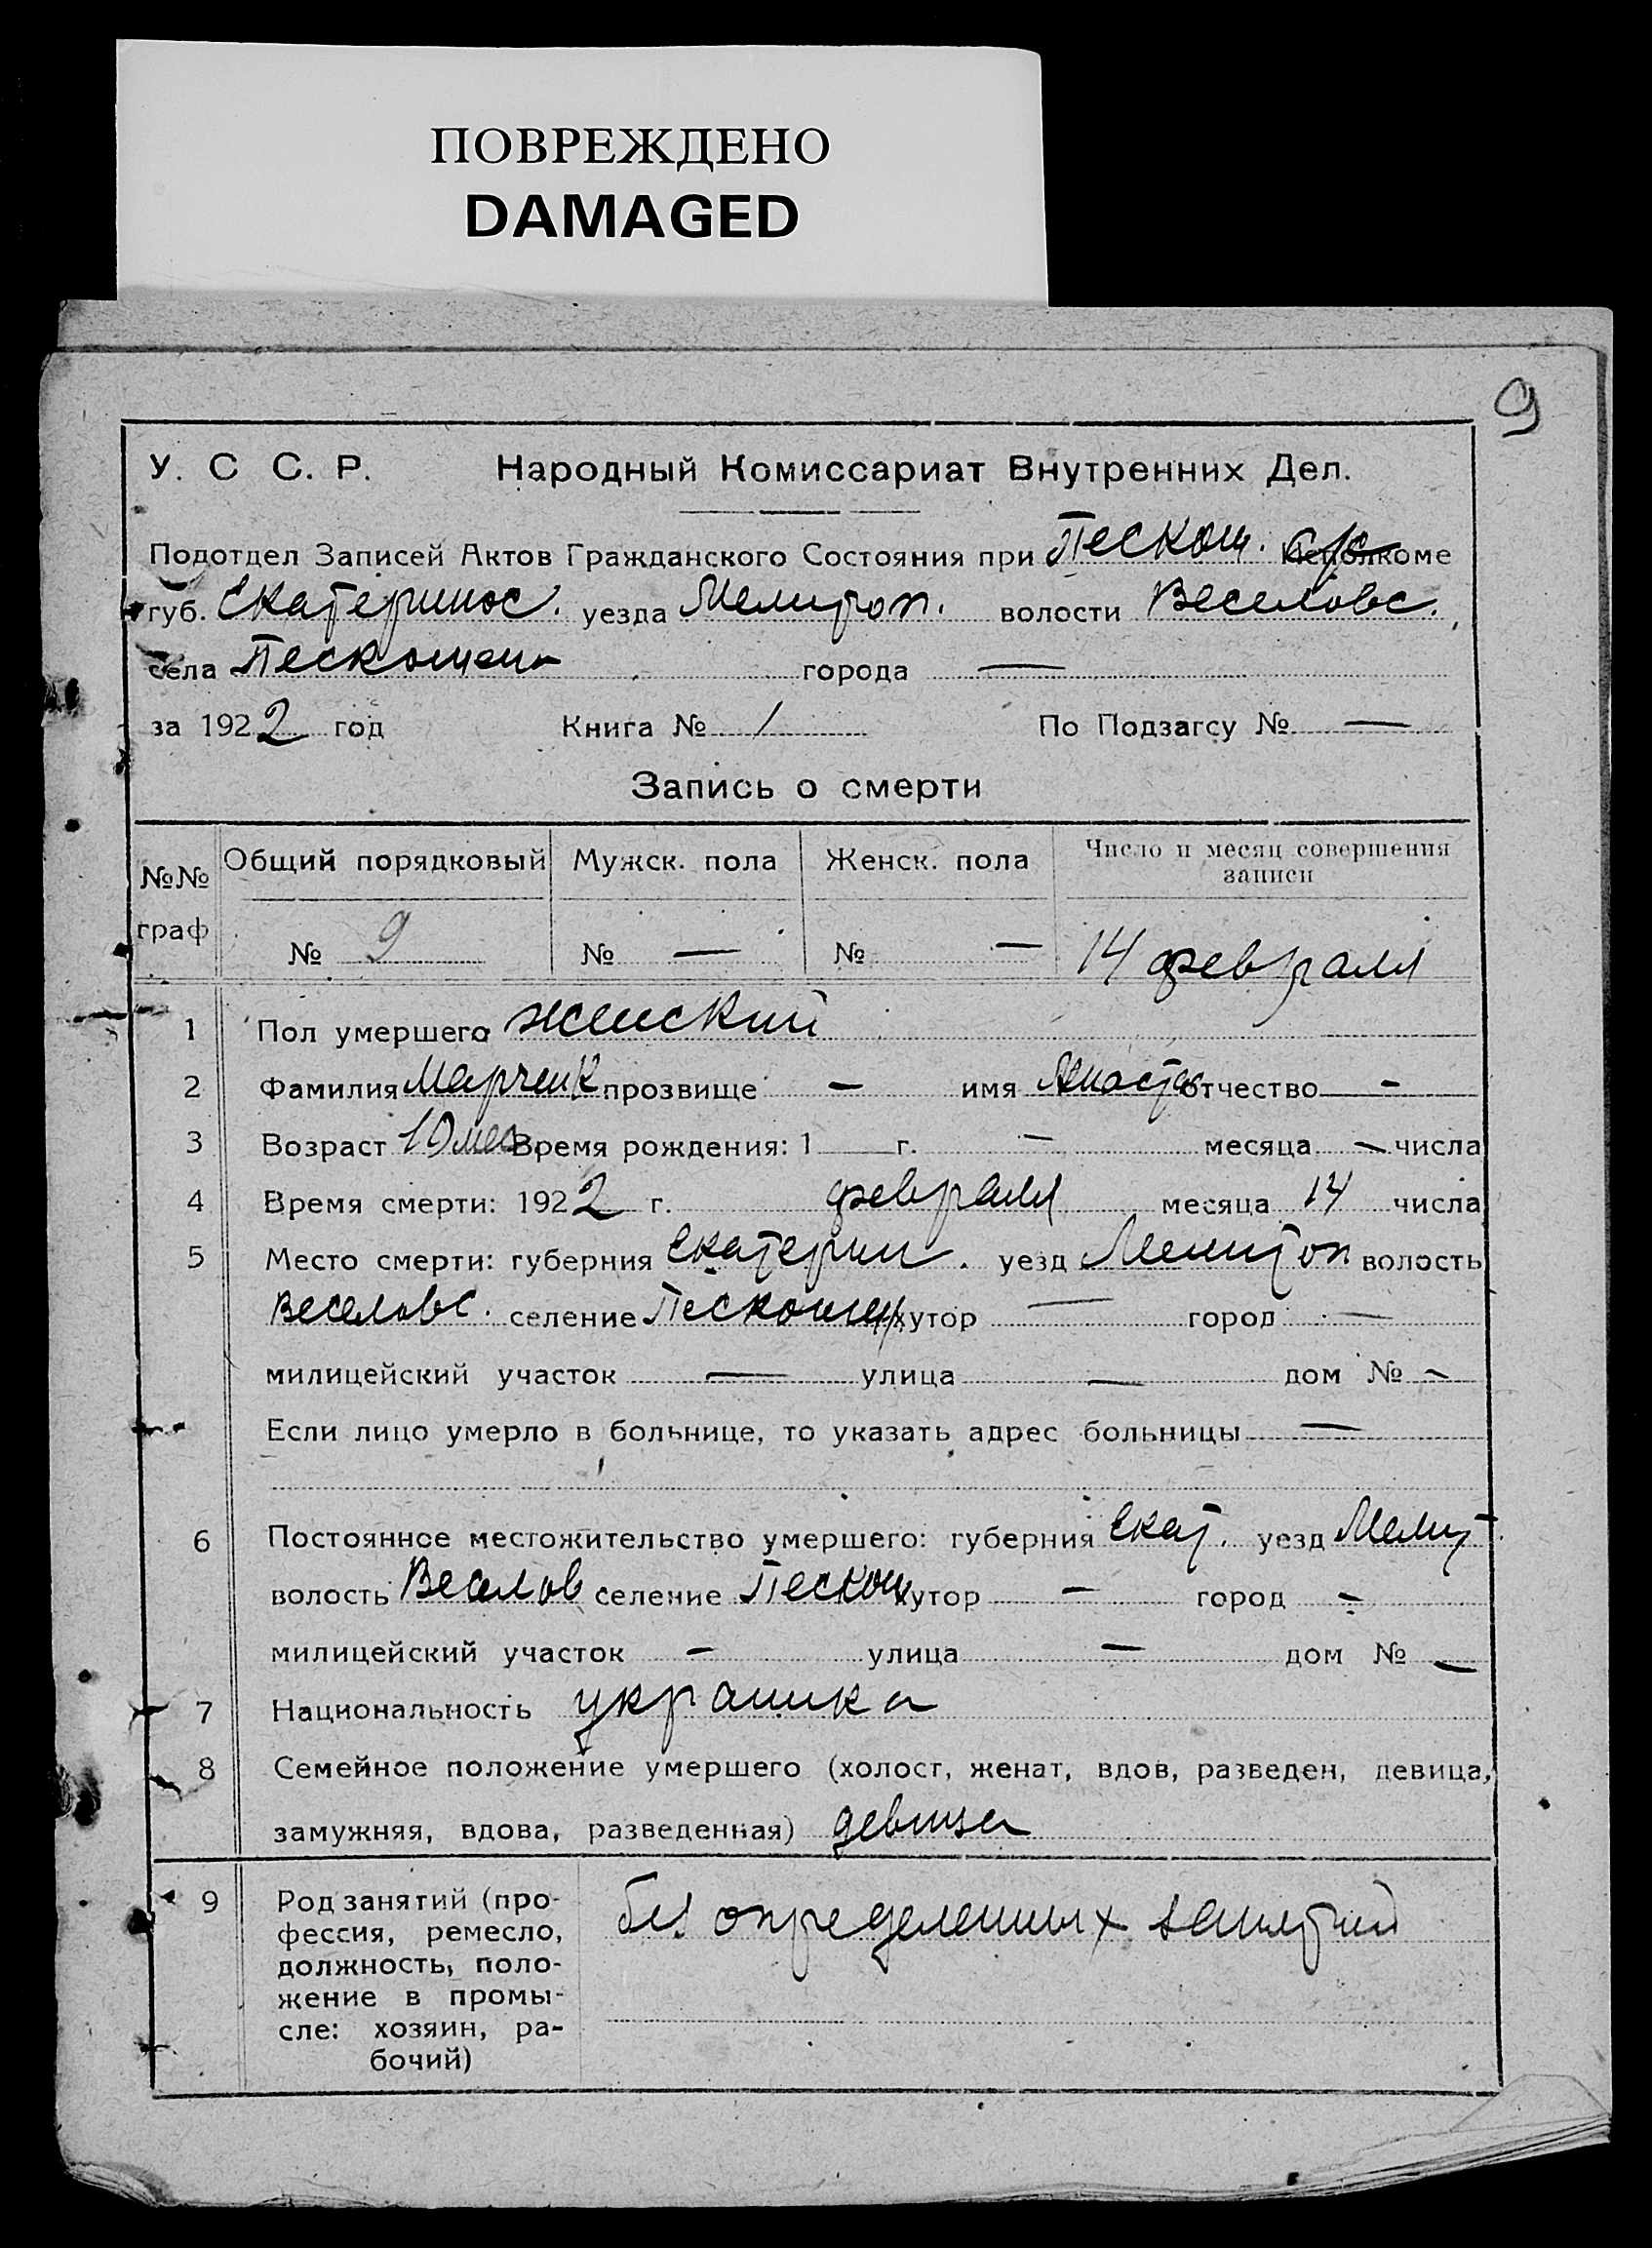 ПОВРЕЖДЕНО
DAMAGED
9
У. С С. Р. Народный Комиссариат Внутренних Дел.
Подотдел Записей Актов Гражданского Состояния при Пескош. с/с Исполкоме
губ. Екатеринос. уезда Мелитоп. волости Веселовс.
села города —
за 1922 год Книга № 1 По Подзагсу № —
Запись о смерти
№№ граф Общий порядковый Мужск. пола Женск. пола Число и месяц совершения записи
№ 9 № — № — 14 февраля
1 Пол умершего женский
2 Фамилия Марченк прозвище — имя Анаста отчество —
3 Возраст 10 мес Время рождения: 1 г. — месяца — числа
4 Время смерти: 1922 г. февраля месяца 14 числа
5 Место смерти: губерния Екатерин. уезд Мелитоп волость
Веселовс. селение хутор — город —
милицейский участок — улица — дом № —
Если лицо умерло в больнице, то указать адрес больницы —
6 Постоянное местожительство умершего: губерния Екат. уезд Мелит.
волость Веселов селение Пескош хутор — город —
милицейский участок — улица — дом № —
7 Национальность украинка
8 Семейное положение умершего (холост, женат, вдов, разведен, девица,
замужняя, вдова, разведенная) девица
9 Род занятий (про-
фессия, ремесло,
должность, поло-
жение в промы-
сле: хозяин, ра-
бочий)
без определенных занятий